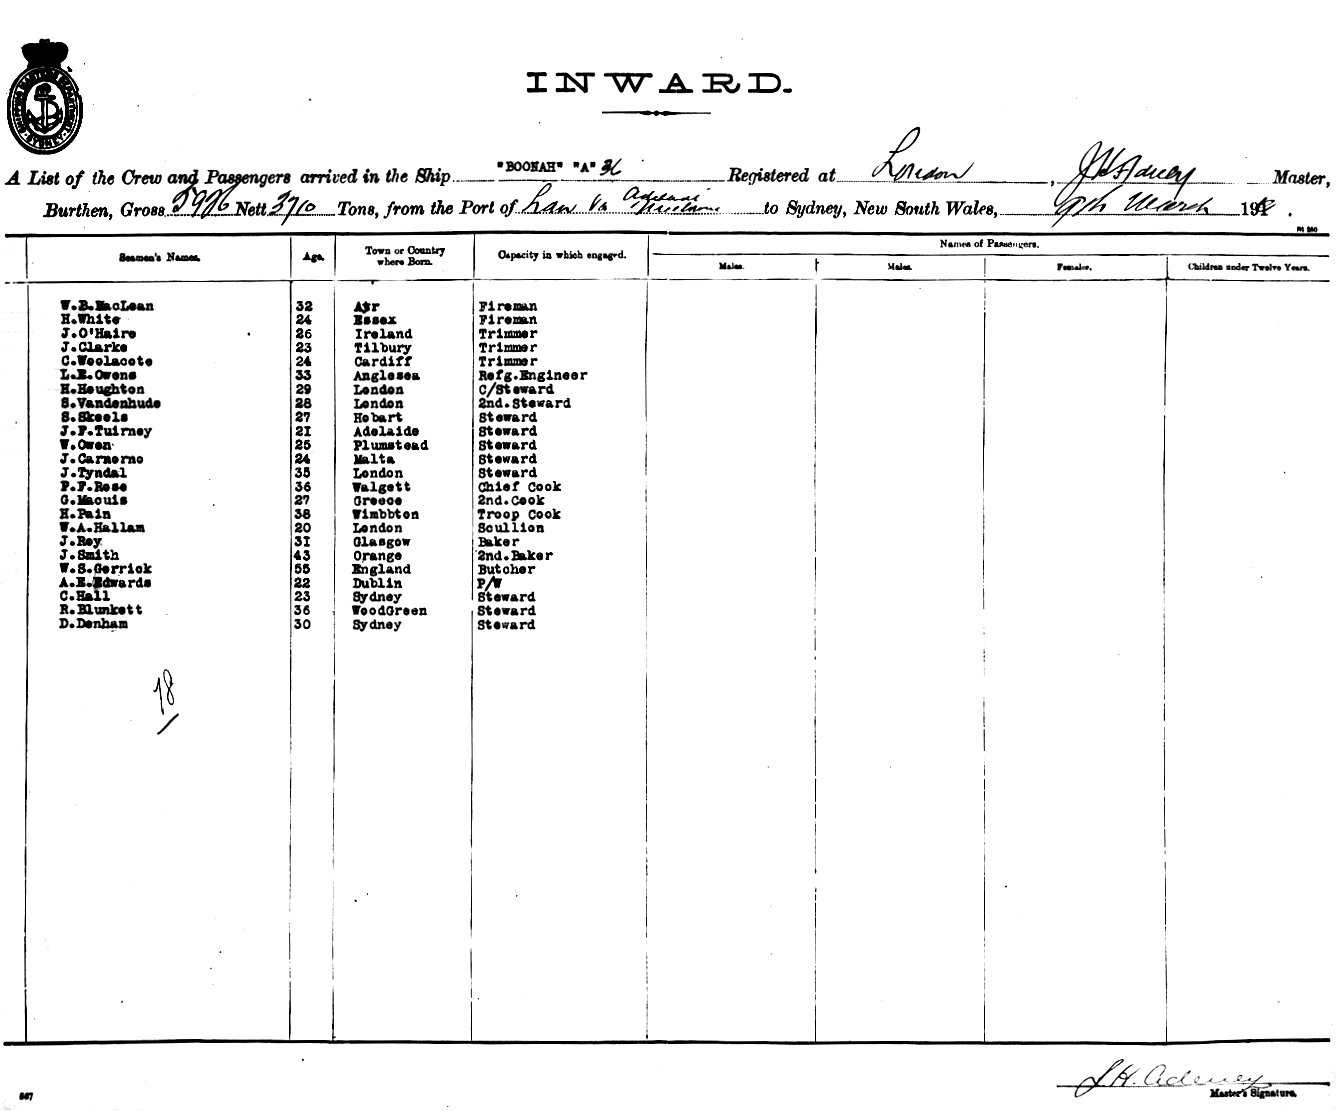 SHIPPING MASTER'S DEPARTMENT SYDNEY
INWARD.
A List of the Crew and Passengers arrived in the Ship "BOONAH" "A" 36 Registered at London, J H Adeney Master,
Burthen, Gross 5926 Nett 3710 Tons, from the Port of via Adelaide to Sydney, New South Wales, 9th March 191
Seamen's Names. Age. Town or Country where Born. Capacity in which engaged. Names of Passengers.
Males. Males. Females. Children under Twelve Years.
W.B.MacLean 32 Ayr Fireman
H.White 24 Essex Fireman
J.O'Haire 26 Ireland Trimmer
J.Clarke 23 Tilbury Trimmer
C.Woolacote 24 Cardiff Trimmer
L.E.Owens 33 Anglesea Refg.Engineer
H.Houghton 29 London C/Steward
S.Vandenhude 28 London 2nd.Steward
S.Skeels 27 Hobart Steward
J.F.Tuirney 21 Adelaide Steward
W.Owen 25 Plumstead Steward
J.Carnerno 24 Malta Steward
J.Tyndal 35 London Steward
P.F.Rose 36 Walgett Chief Cook
G.Macuis 27 Greece 2nd.Cook
H.Pain 38 Wimbbton Troop Cook
W.A.Hallam 20 London Scullion
J.Roy 31 Glasgow Baker
J.Smith 43 Orange 2nd.Baker
W.S.Gerrick 55 England Butcher
A.E.Edwards 22 Dublin P/W
C.Hall 23 Sydney Steward
R.Blunkett 36 WoodGreen Steward
D.Denham 30 Sydney Steward
78
J.H. Adeney
Master's Signature.